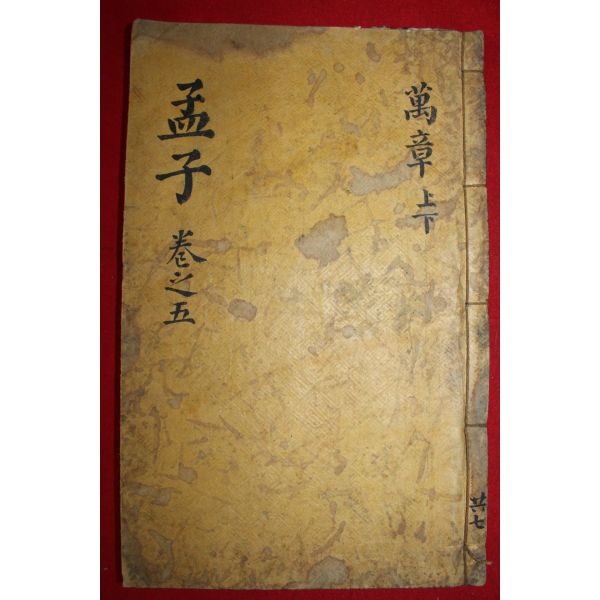 萬章上下
孟子
卷之五
共七